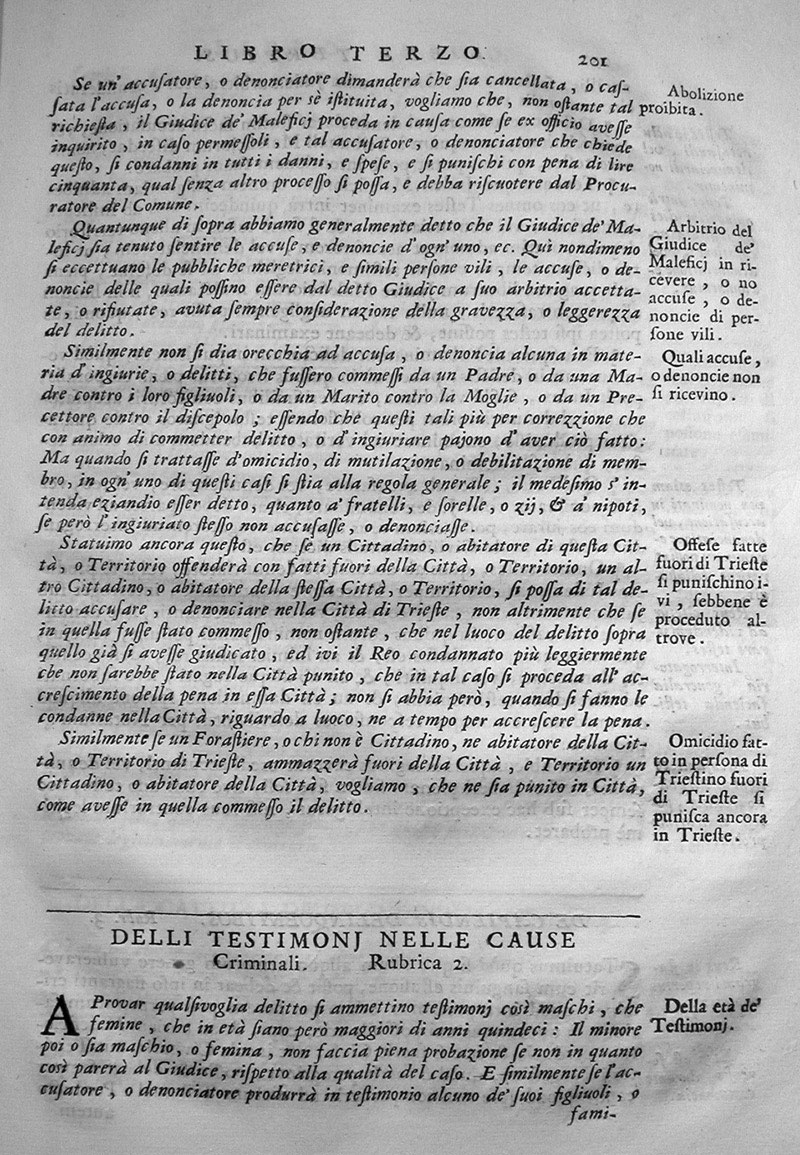 LIBRO TERZO.
201
Se un' accuſatore, o denonciatore dimanderà che ſia cancellata, o caſ-
ſata l'accuſa, o la denoncia per sè iſtituita, vogliamo che, non oſtante tal
richieſta, il Giudice de' Maleficj proceda in cauſa come ſe ex officio aveſſe
inquirito, in caſo permeſſoli, e tal accuſatore, o denonciatore che chiede
queſto, ſi condanni in tutti i danni, e ſpeſe, e ſi puniſchi con pena di lire
cinquanta, qual ſenza altro proceſſo ſi poſſa, e debba riſcuotere dal Procu-
ratore del Comune.
Abolizione
proibita.
Quantunque di ſopra abbiamo generalmente detto che il Giudice de' Ma-
leficj ſia tenuto ſentire le accuſe, e denoncie d'ogn' uno, ec. Quì nondimeno
ſi eccettuano le pubbliche meretrici, e ſimili perſone vili, le accuſe, o de-
noncie delle quali poſſino eſſere dal detto Giudice a ſuo arbitrio accetta-
te, o rifiutate, avuta ſempre conſiderazione della gravezza, o leggerezza
del delitto.
Arbitrio del
Giudice de'
Maleficj in ri-
cevere, o no
accuſe, o de-
noncie di per-
ſone vili.
Similmente non ſi dia orecchia ad accuſa, o denoncia alcuna in mate-
ria d'ingiurie, o delitti, che fuſſero commeſſi da un Padre, o da una Ma-
dre contro i loro figliuoli, o da un Marito contro la Moglie, o da un Pre-
cettore contro il diſcepolo; eſſendo chè queſti tali più per correzzione che
con animo di commetter delitto, o d'ingiuriare pajono d'aver ciò fatto:
Ma quando ſi trattaſſe d'omicidio, di mutilazione, o debilitazione di mem-
bro, in ogn' uno di queſti caſi ſi ſtia alla regola generale; il medeſimo s' in-
tenda eziandio eſſer detto, quanto a' fratelli, e ſorelle, o zij, & a' nipoti,
ſe però l'ingiuriato ſteſſo non accuſaſſe, o denonciaſſe.
Quali accuſe,
o denoncie non
ſi ricevino.
Statuimo ancora queſto, che ſe un Cittadino, o abitatore di queſta Cit-
tà, o Territorio offenderà con fatti fuori della Città, o Territorio, un al-
tro Cittadino, o abitatore della ſteſſa Città, o Territorio, ſi poſſa di tal de-
litto accuſare, o denonciare nella Città di Trieſte, non altrimente che ſe
in quella fuſſe ſtato commeſſo, non oſtante, che nel luoco del delitto ſopra
quello già ſi aveſſe giudicato, ed ivi il Reo condannato più leggiermente
che non ſarebbe ſtato nella Città punito, che in tal caſo ſi proceda all' ac-
creſcimento della pena in eſſa Città; non ſi abbia però, quando ſi fanno le
condanne nella Città, riguardo a luoco, ne a tempo per accreſcere la pena.
Offeſe fatte
fuori di Trieſte
ſi puniſchino i-
vi, ſebbene è
proceduto al-
trove.
Similmente ſe un Foraſtiere, o chi non è Cittadino, ne abitatore della Cit-
tà, o Territorio di Trieſte, ammazzerà fuori della Città, e Territorio un
Cittadino, o abitatore della Città, vogliamo, che ne ſia punito in Città,
come aveſſe in quella commeſſo il delitto.
Omicidio fat-
to in perſona di
Trieſtino fuori
di Trieſte ſi
puniſca ancora
in Trieſte.
DELLI TESTIMONJ NELLE CAUSE
Criminali. Rubrica 2.
A Provar qualſivoglia delitto ſi ammettino teſtimonj così maſchi, che
femine, che in età ſiano però maggiori di anni quindeci: Il minore
poi o ſia maſchio, o femina, non faccia piena probazione ſe non in quanto
così parerà al Giudice, riſpetto alla qualità del caſo. E ſimilmente ſe l'ac-
cuſatore, o denonciatore produrrà in teſtimonio alcuno de' ſuoi figliuoli, o
fami-
Della età de'
Teſtimonj.